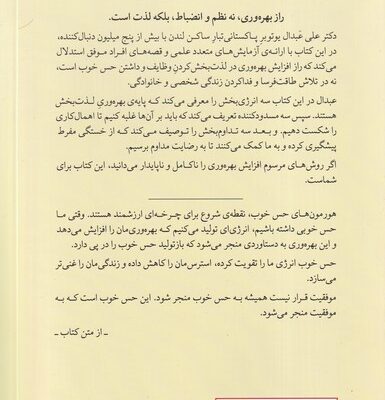 راز بهره‌وری، نه نظم و انضباط، بلکه لذت است.
دکتر علی عَبدال یوتوبر پاکستانی‌تبار ساکن لندن با بیش از پنج میلیون دنبال‌کننده،
در این کتاب با ارائه‌ی آزمایش‌های متعدد علمی و قصه‌های افراد موفق استدلال
می‌کند که راز افزایش بهره‌وری در لذت‌بخش‌کردنِ وظایف و داشتن حس خوب است،
نه در تلاش طاقت‌فرسا و فداکردن زندگی شخصی و خانوادگی.
عبدال در این کتاب سه انرژی‌بخش را معرفی می‌کند که پایه‌ی بهره‌وریِ لذت‌بخش
هستند. سپس سه مسدودکننده تعریف می‌کند که باید بر آن‌ها غلبه کنیم تا اهمال‌کاری
را شکست دهیم. و بعد سه تداوم‌بخش را توصیف می‌کند که از خستگی مفرط
پیشگیری کرده و به ما کمک می‌کنند تا به رضایت مداوم برسیم.
اگر روش‌های مرسوم افزایش بهره‌وری را ناکامل و ناپایدار می‌دانید، این کتاب برای
شماست.
هورمون‌های حس خوب، نقطه‌ی شروع برای چرخه‌ای ارزشمند هستند. وقتی ما
حس خوبی داشته باشیم، انرژی‌ای تولید می‌کنیم که بهره‌وری‌مان را افزایش می‌دهد
و این بهره‌وری به دستاوردی منجر می‌شود که بازتولید حس خوب را در پی دارد.
حس خوب انرژی ما را تقویت کرده، استرس‌مان را کاهش داده و زندگی‌مان را غنی‌تر
می‌سازد.
موفقیت قرار نیست همیشه به حس خوب منجر شود. این حس خوب است که به
موفقیت منجر می‌شود.
ـ از متن کتاب ـ